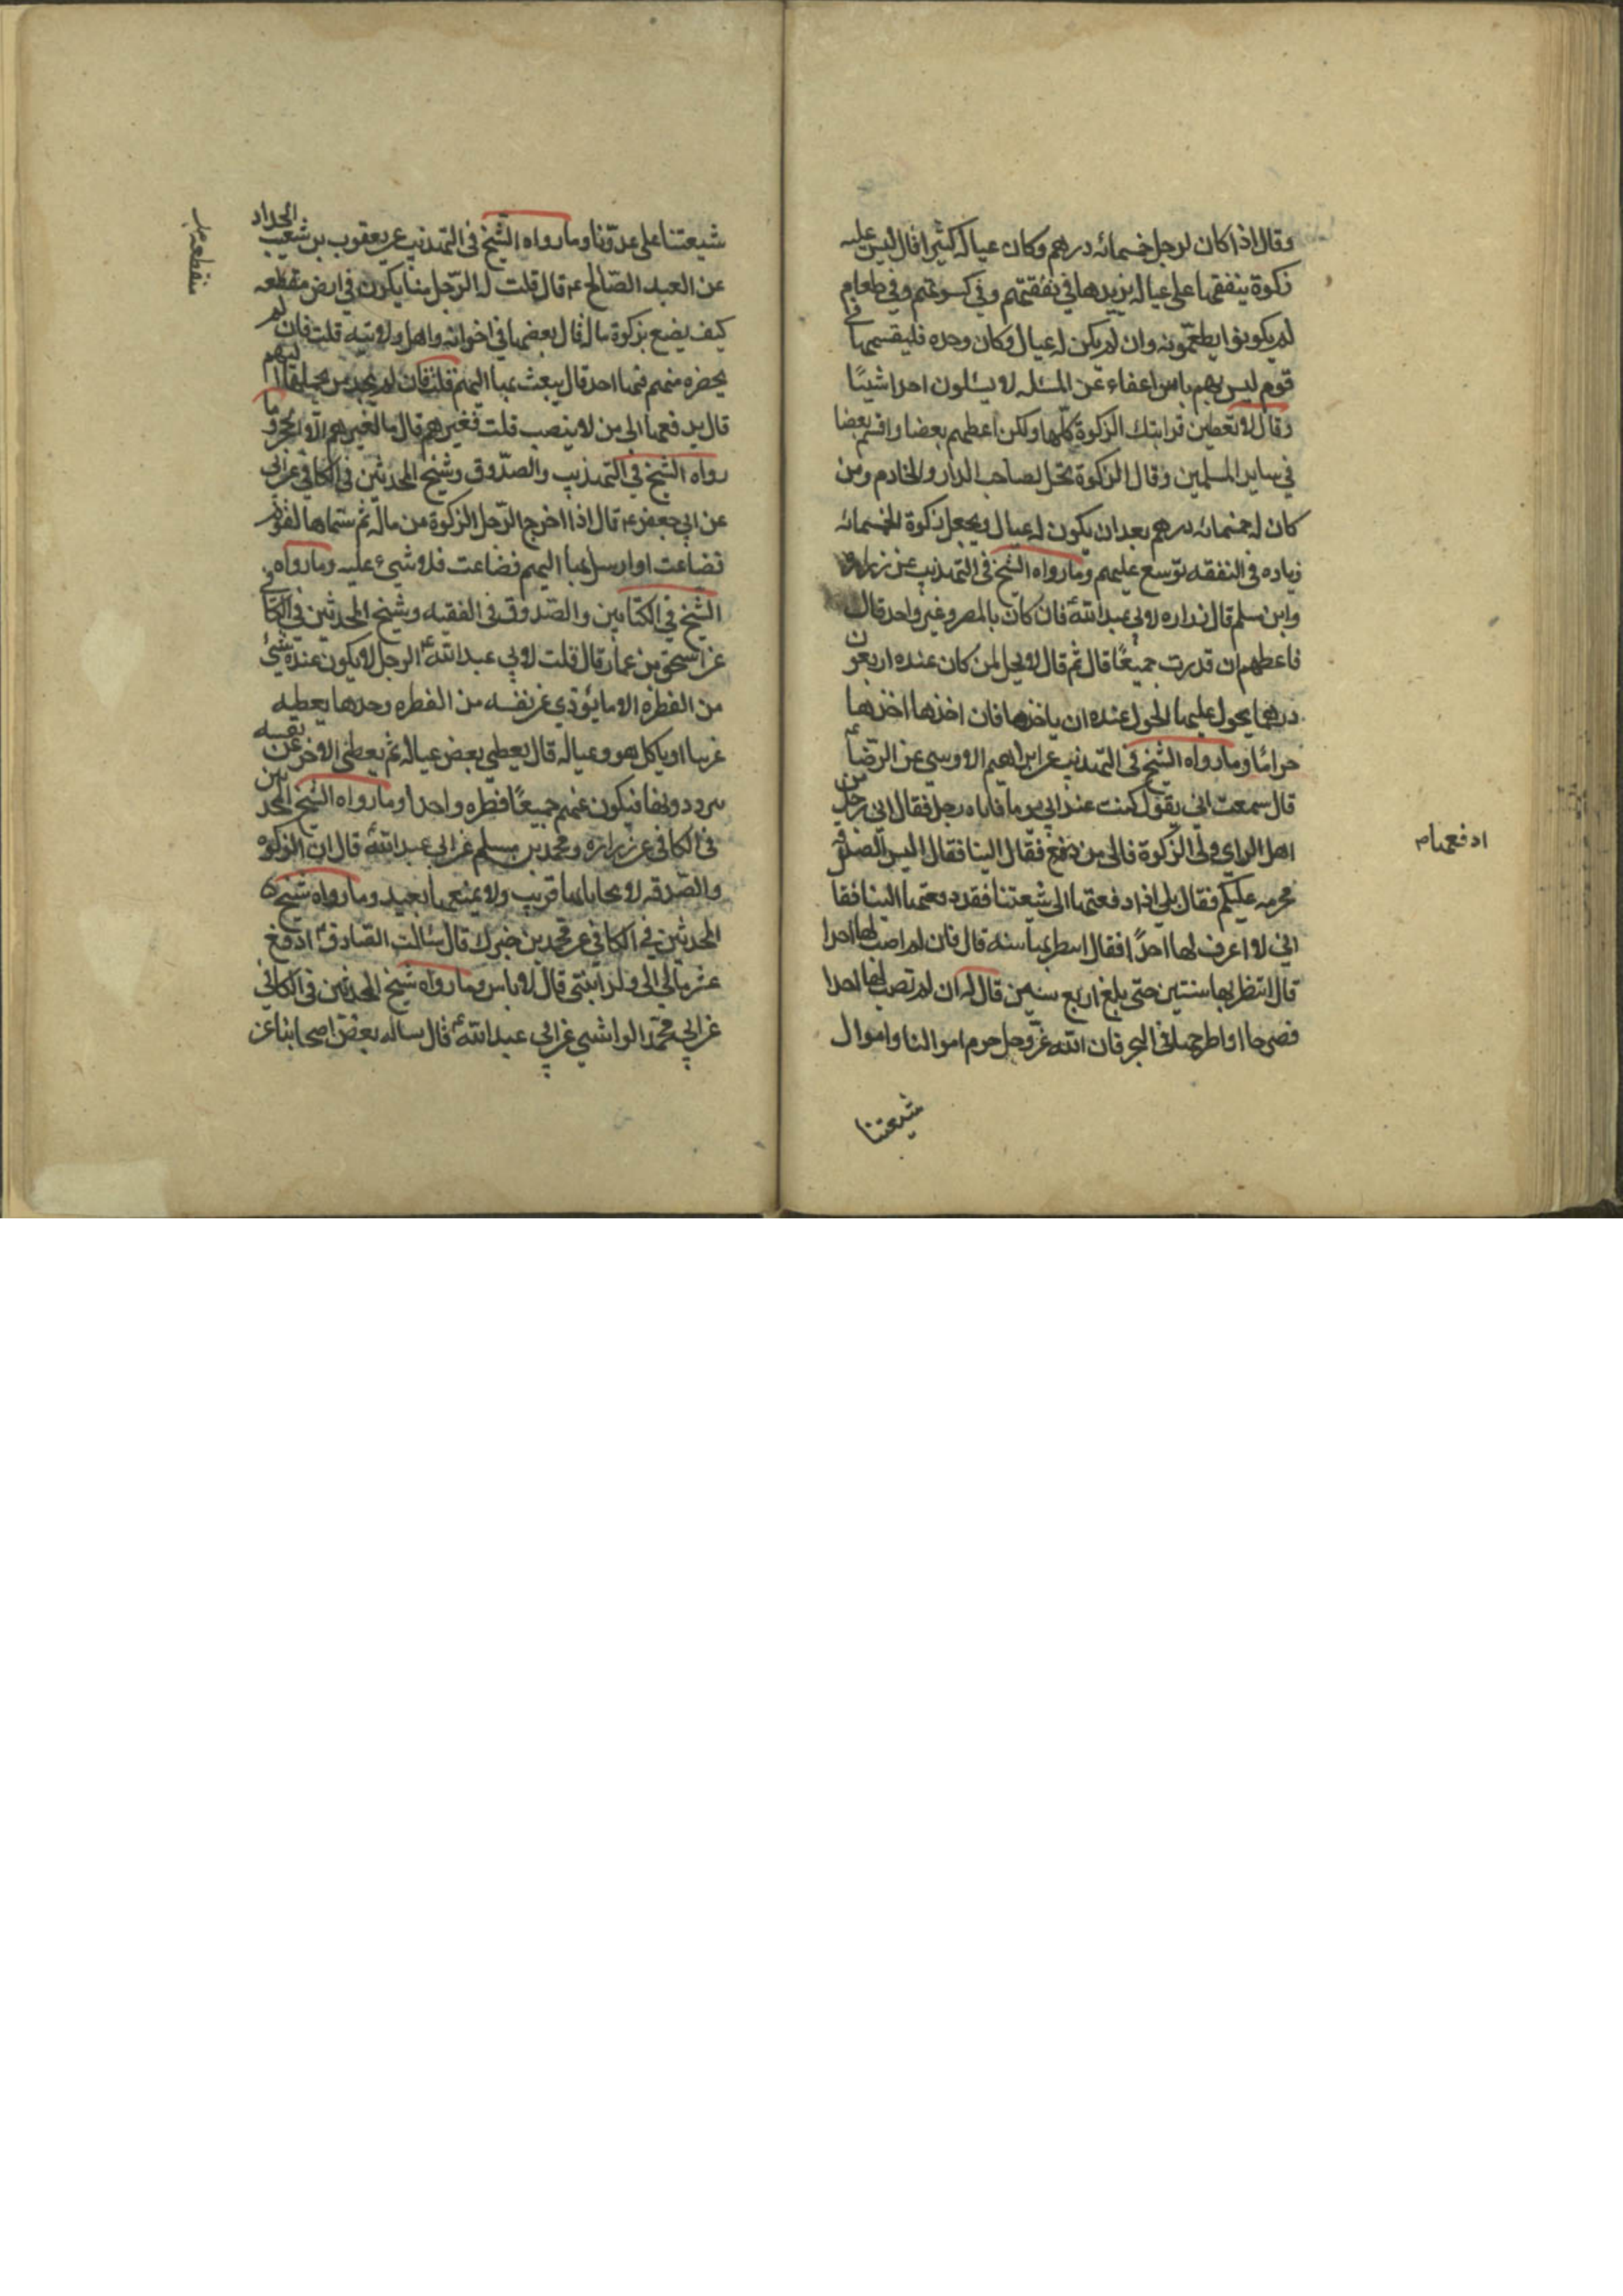 وقال اذا كان لرجل خمسمائه درهم وكان عياله كثيرا قال ليس عليه
زكوة ينفقها على عياله يزيدها في نفقتهم وفي كسوتهم وفي طعام
لم يكونوا يطعمونه وان لم يكن له عيال وكان وحده فليقسمها في
قوم ليس بهم باس اعفاء عن المسئله لا يسئلون احدا شيئا
وقال لا تعطين قرابتك الزكوة كلها ولكن اعطهم بعضا واقسم بعضا
في ساير المسلمين وقال الزكوة تحل لصاحب الدار والخادم ومن
كان له خمسمائه درهم بعد ان يكون له عيال ويجعل زكوة الخمسمائه
زياده في النفقه توسع عليهم وما رواه الشيخ في التهذيب عن زراره
وابن مسلم قال زراره لابي عبد الله ع فان كان بالمصر وغير واحد قال
فاعطهم ان قدرت جميعًا قال ثم قال لا يحل لمن كان عنده اربعون
درهما يحول عليها الحول عنده ان ياخذها فان اخذها اخذها
حرامًا وما رواه الشيخ في التهذيب عن ابراهيم الاوسي عن الرضا ع
قال سمعت ابي يقول كنت عند ابي يوما فاتاه رجل فقال اني رجل من
اهل الراي ولي الزكوة فالى من ادفع فقال الينا فقال اليس الصدقة
محرمه عليكم فقال بلى اذا دفعتها الى شيعتنا فقد دفعتها الينا فقا
اني لا اعرف لها احدًا فقال انتظر بها سنه قال فان لم اصب لها احدا
قال انتظر بها سنتين حتى بلغ اربع سنين قال له ان لم تصب لها احدا
فصرها اواطرحها في البحر فان الله عز وجل حرم اموالنا واموال
شيعتنا
ادفعها م
شيعتنا على عدونا وما رواه الشيخ في التهذيب عن يعقوب بن شعيب الحداد
عن العبد الصالح ع قال قلت له الرجل منا يكون في ارض منقطعه
كيف يصنع بزكوة ماله قال يضعها في اخوانه واهل ولايته قلت فان لم
يحضره منهم فيها احد قال يبعث بها اليهم قلت فان لم يجد من يحملها اليهم
قال يدفعها الى من لا ينصب قلت فغيرهم قال ما لغيرهم الا الحجر وما
رواه الشيخ في التهذيب والصدوق وشيخ المحدثين في الكافي عن ابي
عن ابي جعفر ع قال اذا اخرج الرجل الزكوة من ماله ثم سماها لقوم
فضاعت او ارسل بها اليهم فضاعت فلا شيء عليه وما رواه
الشيخ في الكتابين والصدوق في الفقيه وشيخ المحدثين في الكافي
عن اسحق بن عمار قال قلت لابي عبد الله ع الرجل لا يكون عنده شيء
من الفطرة الا ما يؤدي عن نفسه من الفطره وحدها يعطيه
غريبا او ياكل هو وعياله قال يعطي بعض عياله ثم يعطي الاخر عن نفسه
يرددونها فيكون عنهم جميعًا فطره واحدا وما رواه الشيخ المحدثين
في الكافي عن زراره ومحمد بن مسلم عن ابي عبد الله ع قال ان الزكوه
والصدقه لا يحابا بها قريب ولا يمنعها بعيد وما رواه شيخ
المحدثين في الكافي عن محمد بن خبرك قال سئالت الصادق ع ادفع
عشر مالي الى ولد ابنتي قال لا باس وما رواه شيخ المحدثين في الكافي
عن ابي محمد الوابشي عن ابي عبد الله ع قال ساله بعض اصحابنا عن